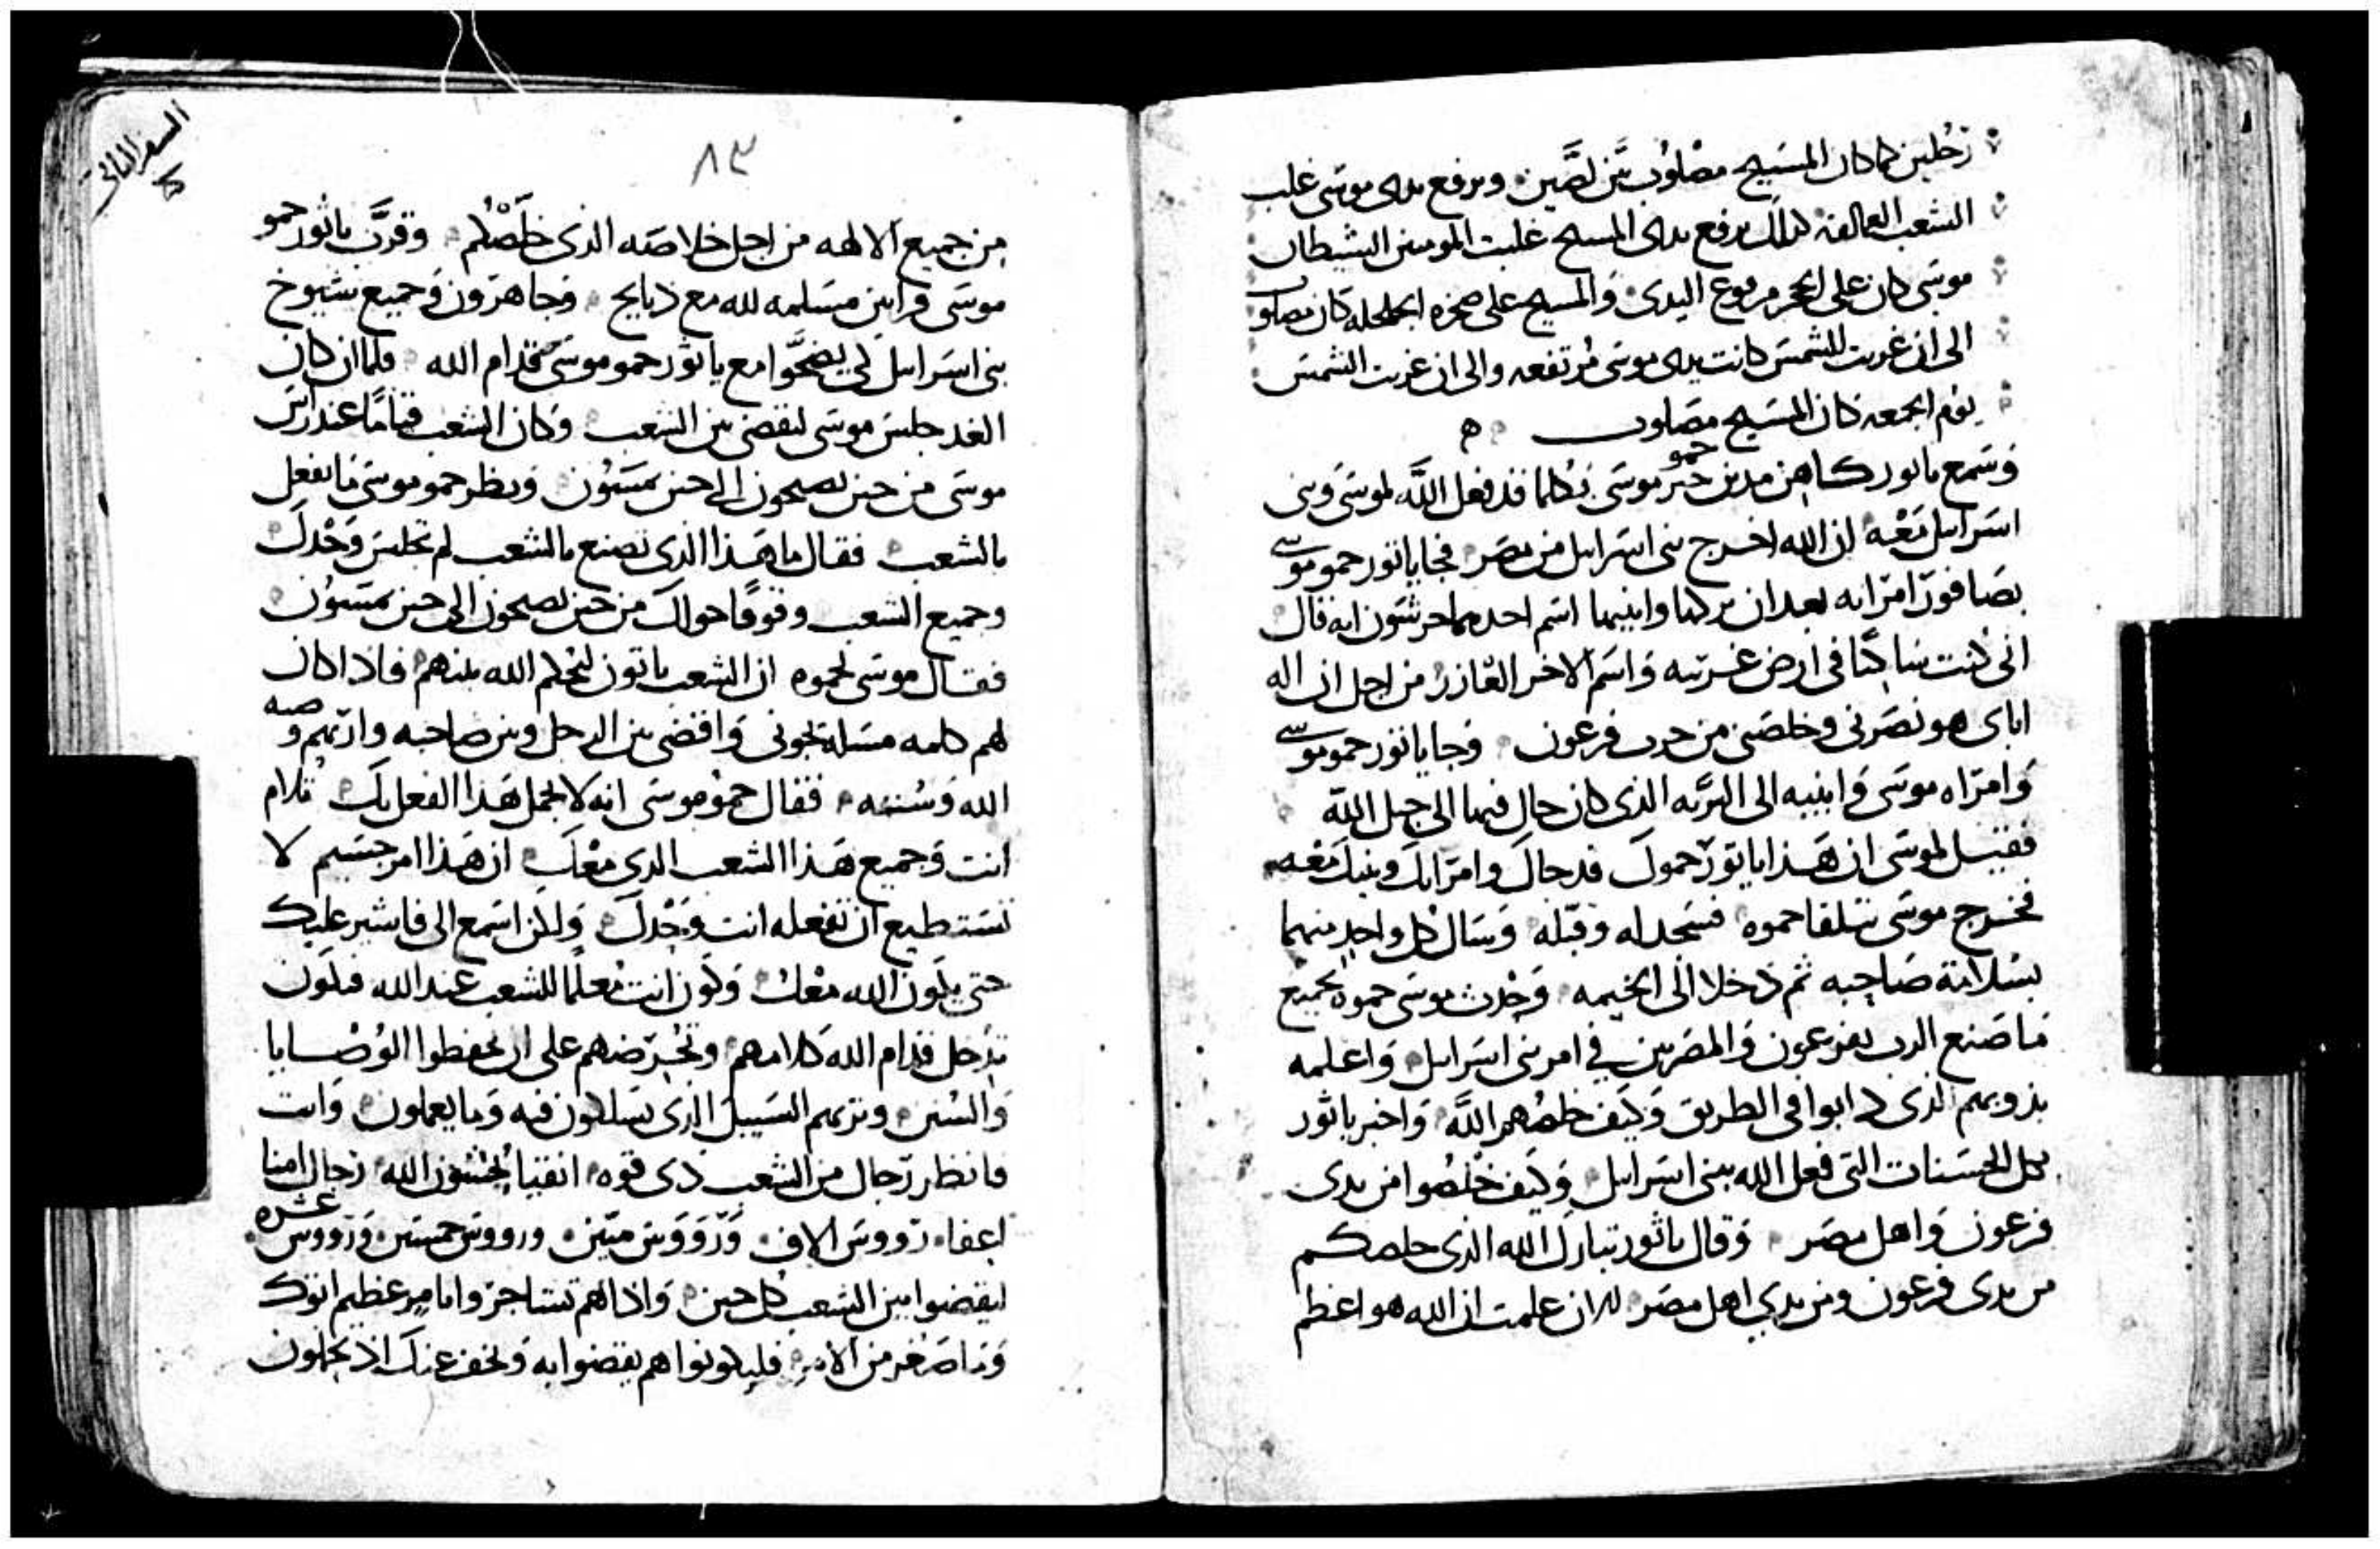 رجلين كما كان المسيح مصلوب بين لصين وبرفع يدى موسى غلب
الشعب العمالقه كذلك برفع يدى المسيح غلبت المومنين الشيطان
موسى كان على الحجر مرفوع اليدى والمسيح على صخره الجلجله كان مصلوب
الى ان غربت الشمس كانت يدى موسى مرتفعه والى ان غربت الشمس
يوم الجمعه كان المسيح مصلوب
وسمع ياثور كاهن مدين حمو موسى بكلما قد فعل الله لموسى وبنى
اسرايل معه ان الله اخرج بنى اسرايل من مصر فجا ياثور حمو موسى
بصافورا امراته بعد ان تركها وابنيها اسم احدهما جرشون انه قال
انى كنت ساكنا فى ارض غربه واسم الاخر العازر من اجل ان اله
اباى هو نصرنى وخلصنى من حرب فرعون وجا ياثور حمو موسى
وامراه موسى وابنيه الى البريه الذى كان حال فيها الى جبل الله
فقيل لموسى ان هذا ياثور حموك قد جاك وامراتك وبنيك معه
فخرج موسى تتلقا حموه فسجد له وقبله وسال كل واحد منهما
بسلامة صاحبه ثم دخلا الى الخيمه وحدث موسى حموه بجميع
ما صنع الرب بفرعون والمصريين فى امر بنى اسرايل واعلمه
بذوبهم الذى دابوا فى الطريق وكيف خلصهم الله واخبر ياثور
بكل الحسنات التى فعل الله ببنى اسرايل وكيف خلصوا من يدى
فرعون واهل مصر وقال ياثور تبارك الله الذى خلصكم
من يدى فرعون ومن يدي اهل مصر الان علمت ان الله هو اعظم
السفر الثانى
٨٣
من جميع الالهه من اجل خلاصه الذى خلصكم وقرب ياثور حمو
موسى قرابين مسلمه لله مع ذبايح وجا هرون وجميع شيوخ
بنى اسرايل لكى يضحوا مع ياثور حمو موسى قدام الله فلما ان كان
الغد جلس موسى ليقضى بين الشعب وكان الشعب قياما عند راس
موسى من حين يصبحون الى حين يمسون ونظر حمو موسى ما يفعل
بالشعب فقال ما هذا الذى تصنع بالشعب لم تجلس وحدك
وجميع الشعب وقوفا حولك من حين يصبحون الى حين يمسون
فقال موسى لحموه ان الشعب ياتون ليحكم الله بينهم فاذا كان
لهم كلمه مسله يجونى واقضى بين الرجل وبين صاحبه واريهم وصيه
الله وسننه فقال حمو موسى انه لا يجمل هذا الفعل بك تلام
انت وجميع هذا الشعب الذى معك ان هذا امر جسيم لا
تستطيع ان تفعله انت وحدك ولكن اسمع الى فاشير عليك
حتى يكون الله معك وتكون انت معلما للشعب عند الله فتكون
تدخل قدام الله كلامهم وتحرضهم على ان يحفظوا الوصايا
والسنن وتريهم السبيل الذى يسلكون فيه وما يعملون وانت
فانظر رجال من الشعب ذى قوه اتقيا يخشون الله رجال امنا
اعفا رووس الاف ورووس ميين ورووس خمسين ورووس عشره
ليقضوا بين الشعب كل حين واذا لهم تشاجروا بامر عظيم اتوك
وما صغر من الامر فليكونوا هم يقضوا به ويخفف عنك اذ يحملون